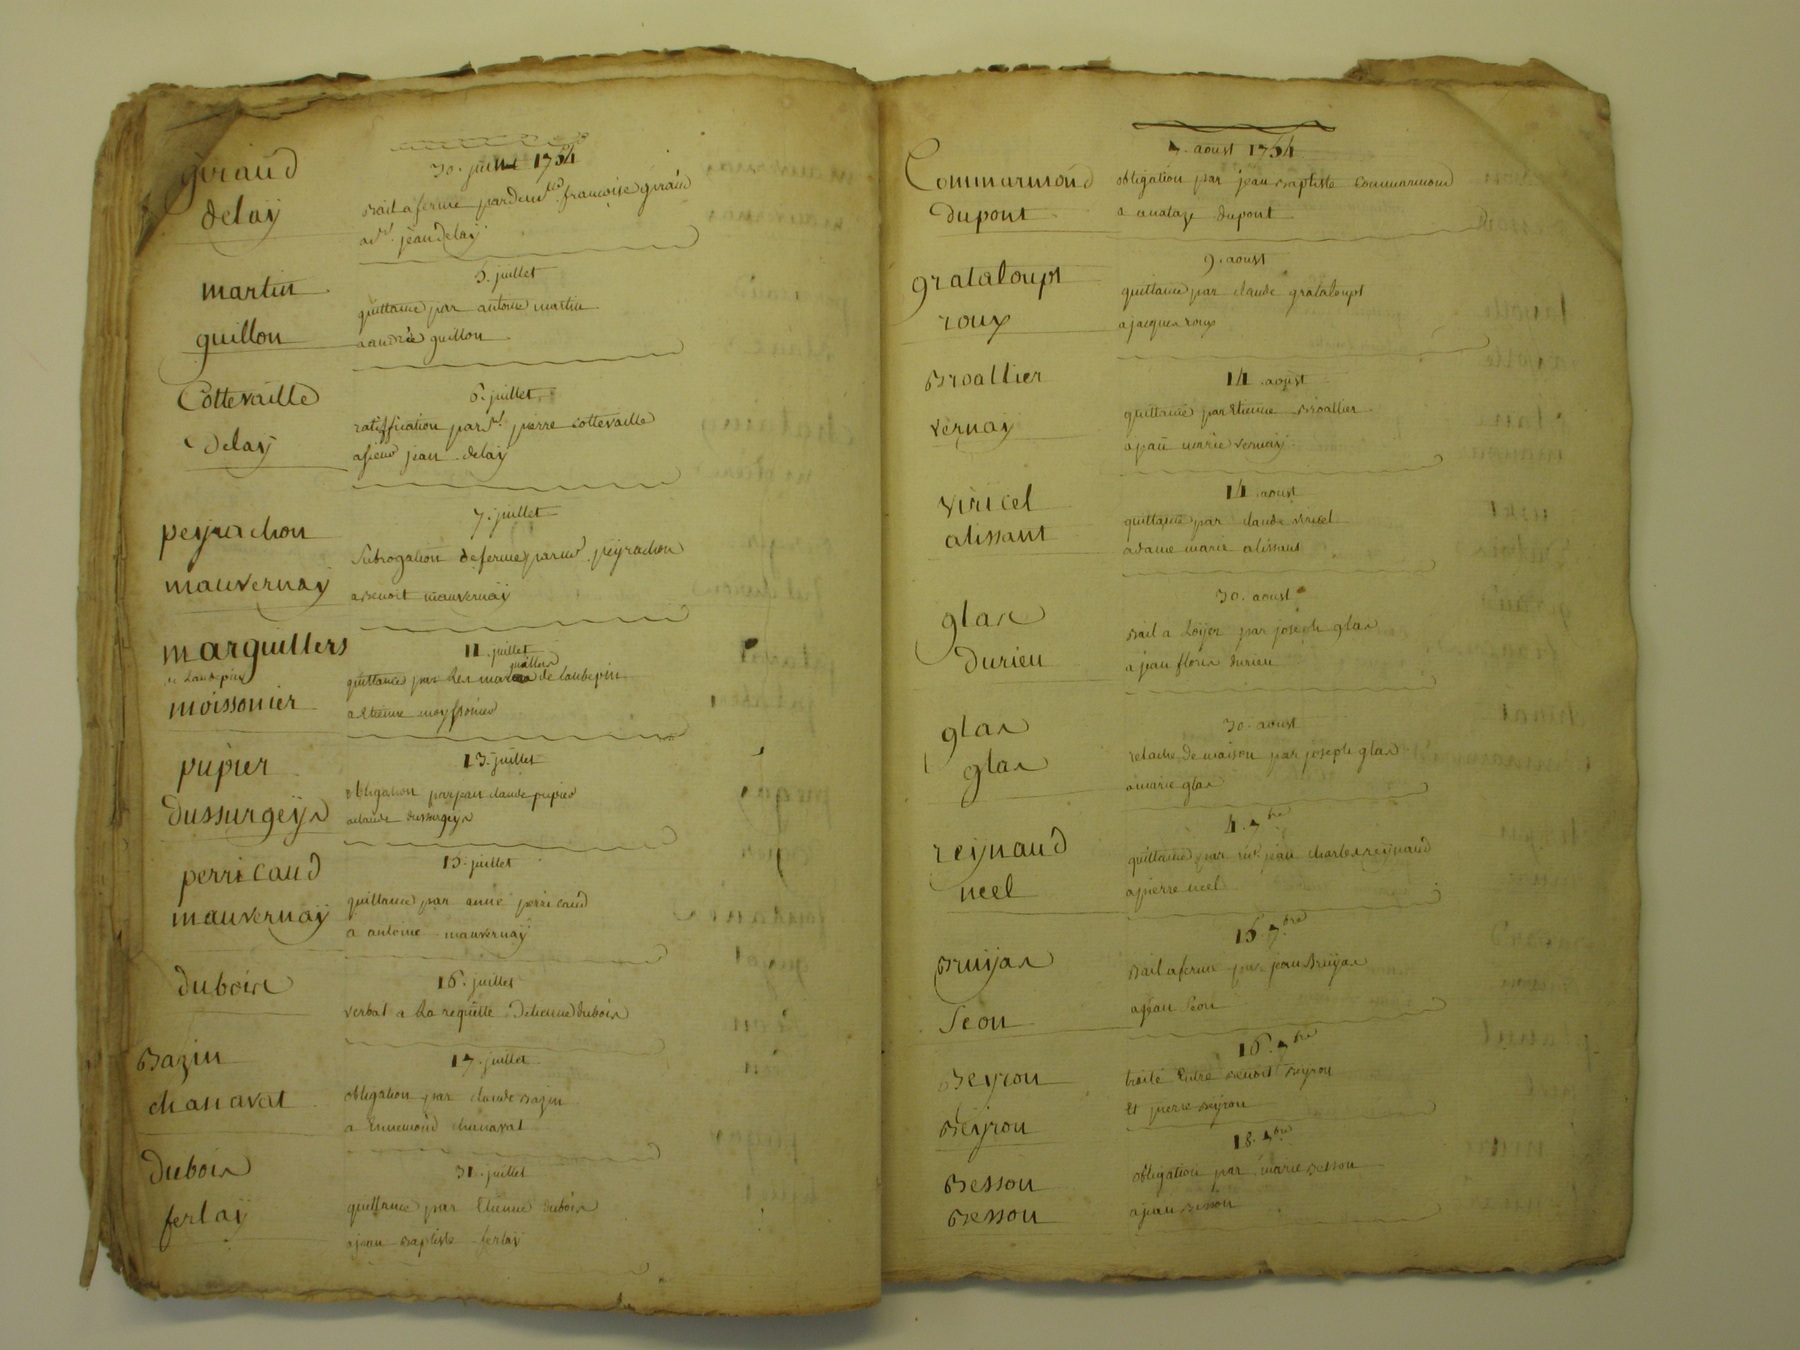 giraud
delaÿ
30. juin 1754
Bail a ferme par dem.lle francoise giraud
a s.r jean delaÿ
martin
guillon
5. juillet
quittance par antoine martin
a andré guillon
Cottevaille
Delaÿ
6. juillet
ratiffication par s.r pierre cottevaille
a sieur jean delaÿ
peyrachon
mauvernaÿ
7. juillet
Subrogation de ferme par m.r peyrachon
a Benoit mauvernaÿ
marguilliers
de Laubepin
moissonier
11. juillet
quittance par Les marguilliers de Laubepin
a Etienne moyssonier
pupier
Dussurgeÿs
13. juillet
obligation par jean claude pupier
a claude dussurgeÿs
perricaud
mauvernaÿ
15. juillet
quittance par anne perricaud
a antoine mauvernaÿ
dubois
16. juillet
verbal a La requette D'etienne dubois
Bazin
chanavat
17. juillet
obligation par claude Bazin
a Ennemond chanavat
Dubois
ferlaÿ
31. juillet
quittance par Etienne dubois
a jean Baptiste ferlaÿ
7. aoust 1754
Commarmond
dupont
obligation par jean Baptiste Commarmond
a dupont
grataloups
roux
9. aoust
quittance par claude grataloups
a jacques roux
Broallier
vernaÿ
14. aoust
quittance par Etienne Broallier
a jean marie vernaÿ
viricel
alissant
14. aoust
quittance par claude viricel
a dame marie alissant
glas
Durieu
30. aoust
Bail a Loÿer par joseph glas
a jean floris durieu
glas
glas
30. aoust
relache de maison par joseph glas
a marie glas
reÿnaud
neel
4. 7.bre
quittance par m.e jean charles reÿnaud
a pierre neel
Bruÿas
Seon
15. 7.bre
Bail a ferme par jean Bruÿas
a jean Seon
Beyron
Beÿron
16. 7.bre
traité Entre Benoit Beyron
Et pierre Beÿron
Besson
Besson
18. 7.bre
obligation par marie Besson
a jean Besson